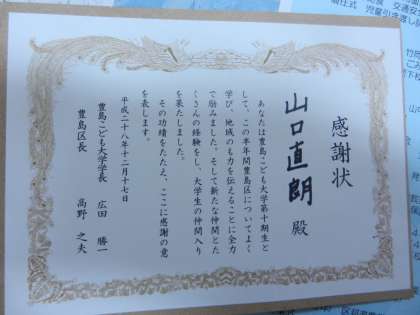 感謝状
山口直朗 殿
あなたは豊島こども大学第十期生と
して、この本年間豊島区についてよく
学び、地域のも力を伝えることに全力
で励みました。そして新たな仲間とた
くさんの経験をし、大学生の仲間入り
を果たしました。
その功績をたたえ、ここに感謝の意
を表します。
平成二十八年十二月十七日
豊島こども大学学長 広田 勝一
豊島区長 高野 之夫